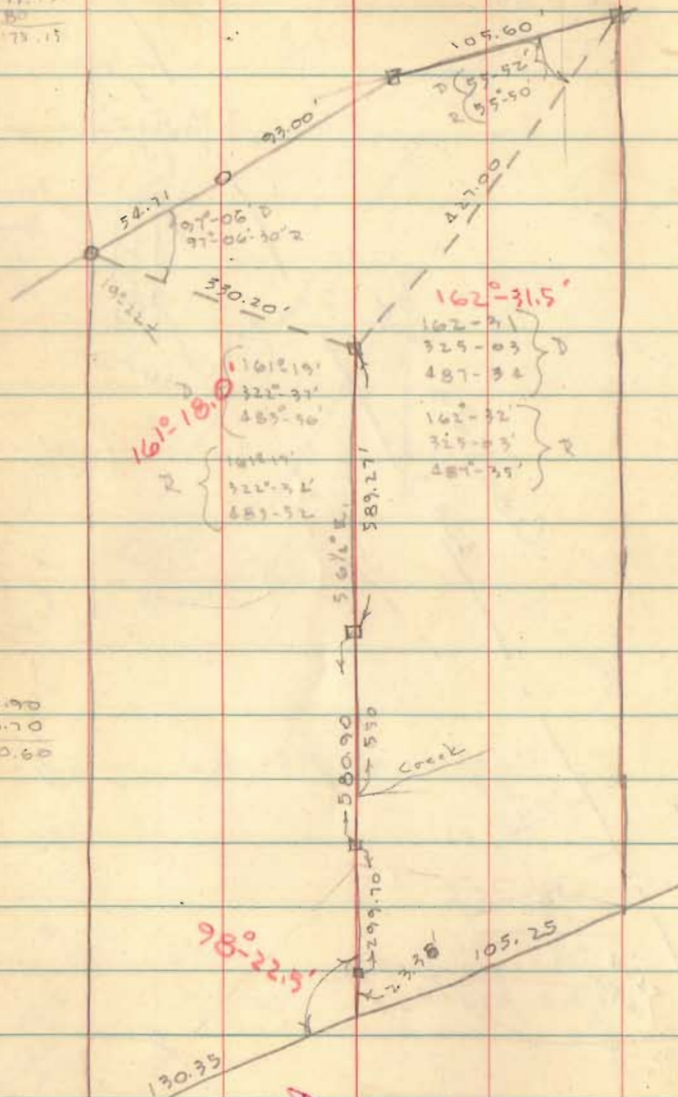 80
178.15
105.60'
D 55-52'
R 55°-50'
93.00'
54.71
97°-06' D
97°-06'-30" R
427.00
330.20'
162°-31.5'
162-31
325-03
487-34
D
162-32'
325-03'
487-35'
R
161°-18.0'
D
161°19'
322°-37'
483°-56'
R
322°-34'
483-52
589.27'
.90
.70
0.60
580.90
550
Creek
299.70
98°-22.5'
105.25
130.35